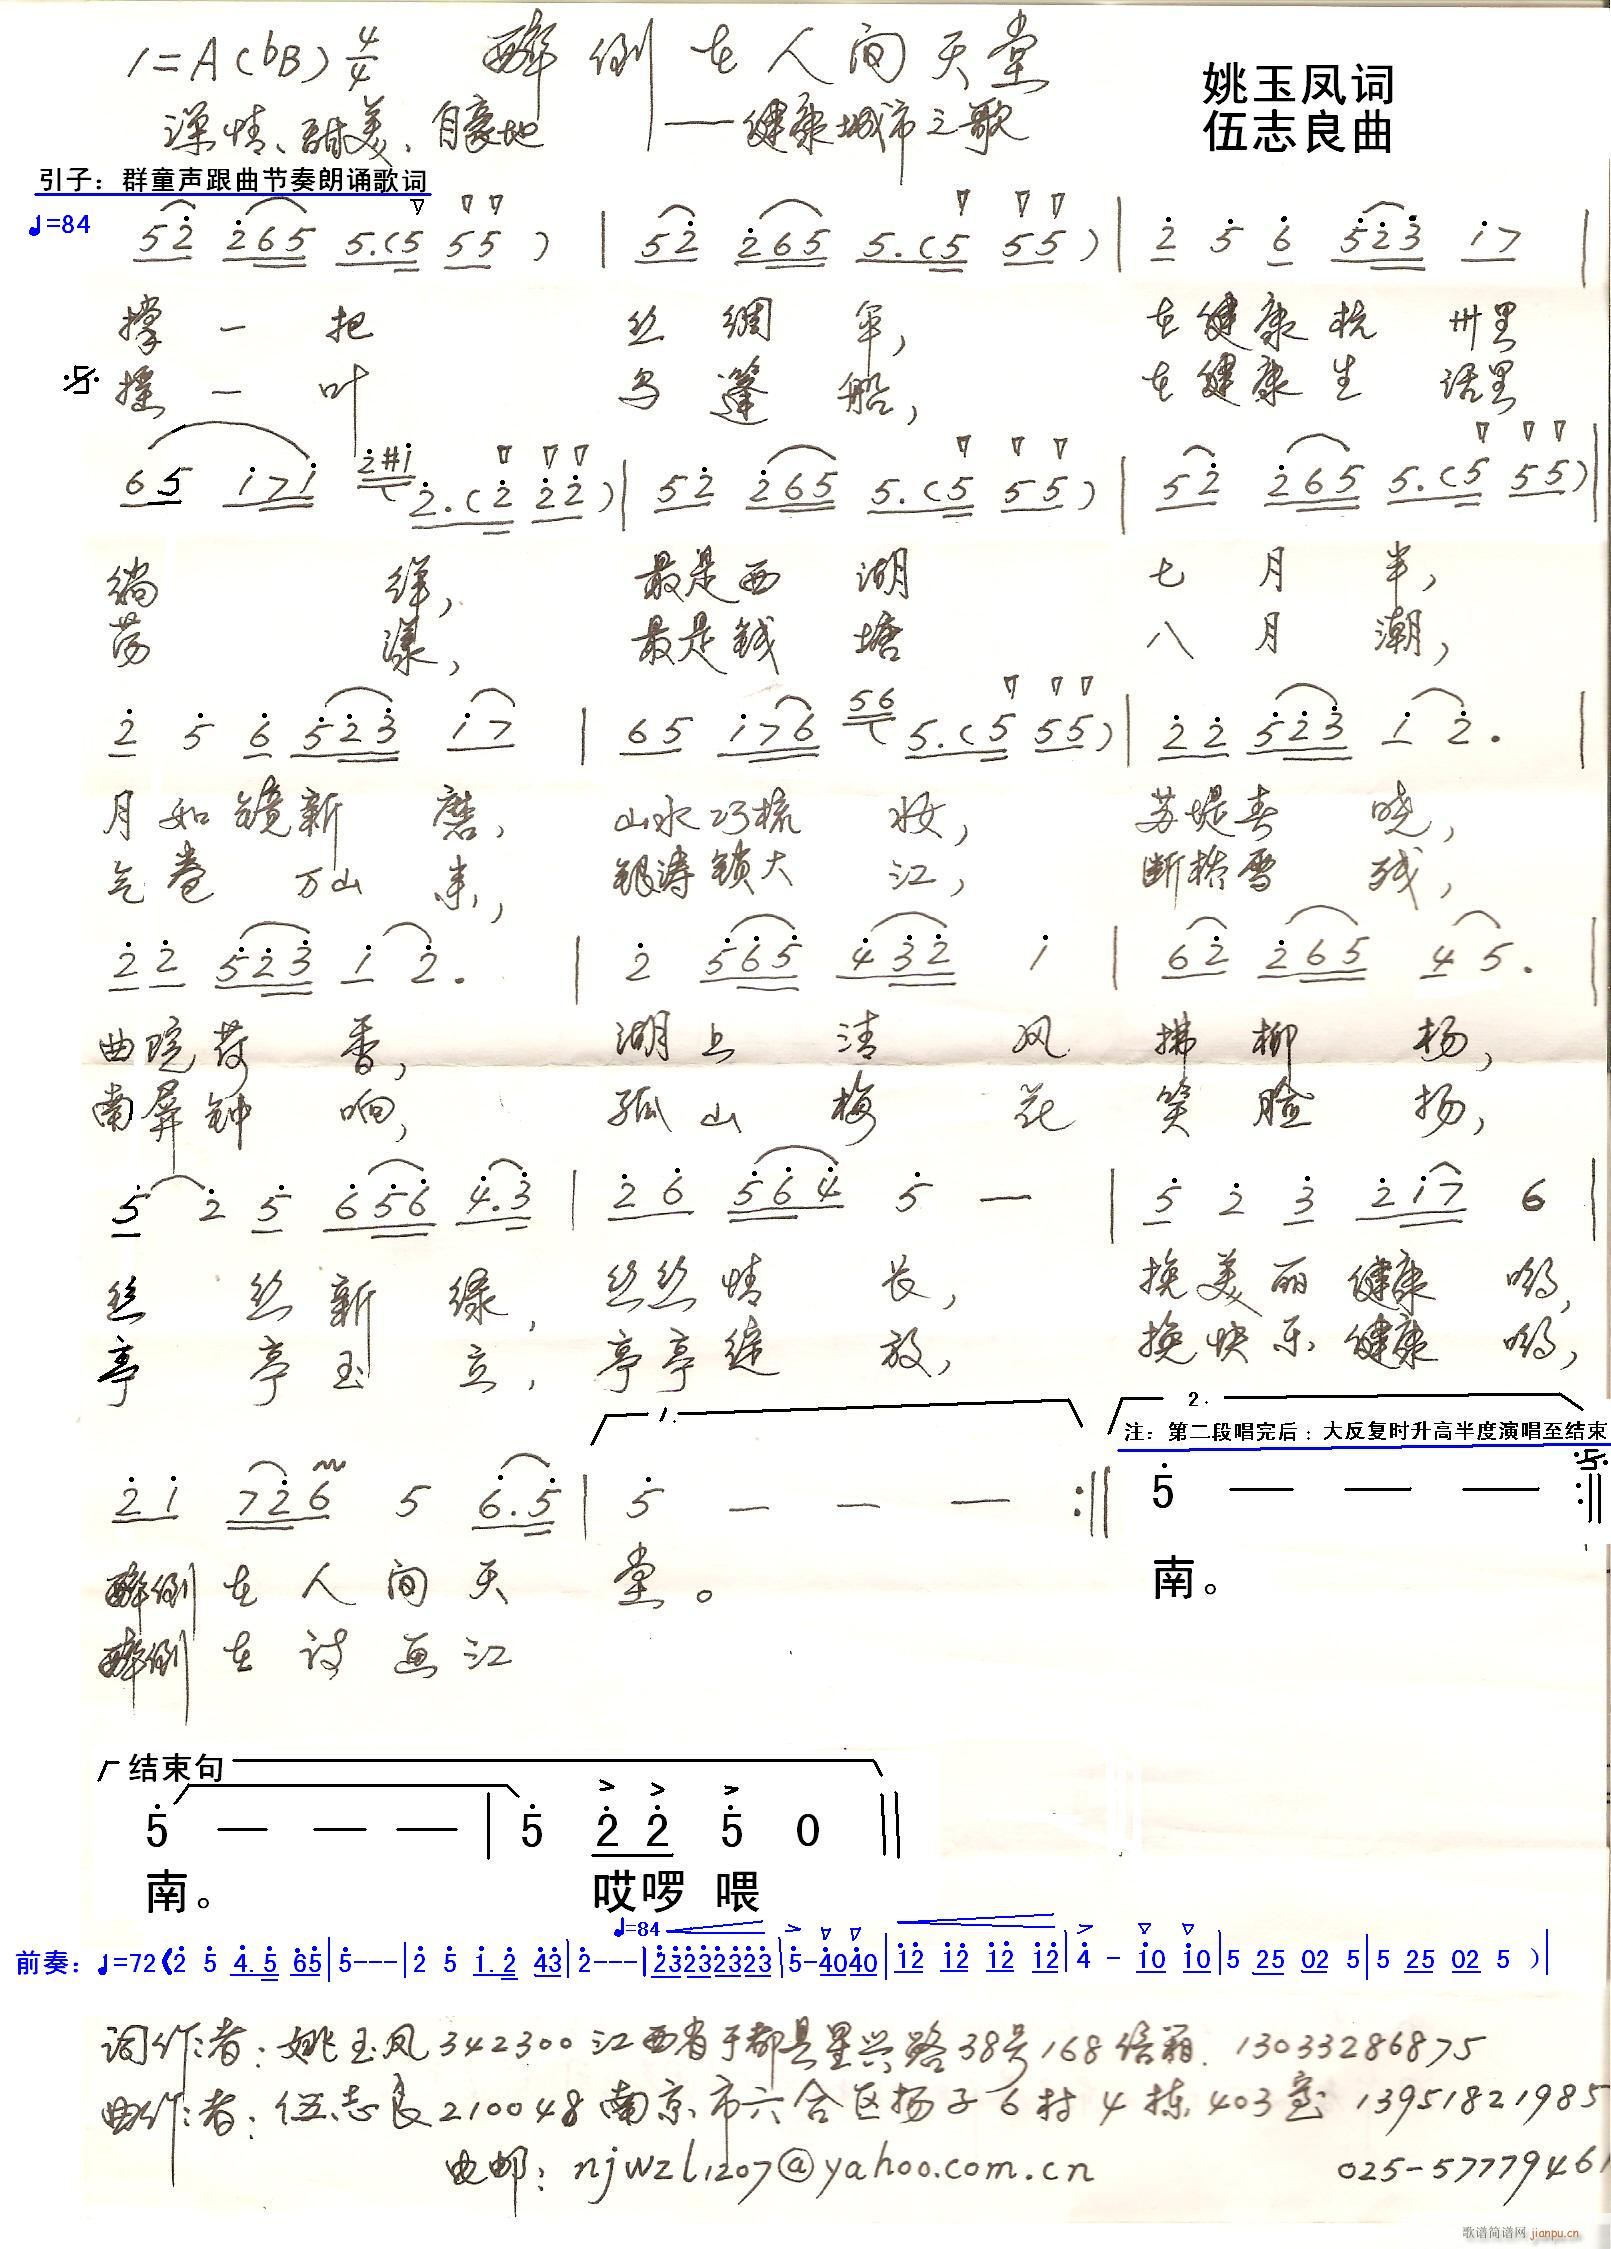 1=A(bB) 4/4 醉倒在人间天堂
姚玉凤词
深情、甜美、自豪地 ——健康城市之歌
伍志良曲
引子：群童声跟曲节奏朗诵歌词
♩=84 52̇ 2̇65 5.(5 55) | 52̇ 2̇65 5.(5 55) | 2̇ 5̇ 6̇ 5̇2̇3̇ 1̇7 |
撑一把 丝绸伞， 在健康杭州里
摇一叶 乌篷船， 在健康生活里
65 1̇71̇ 2̇#1̇ 2̇.(2̇ 2̇2̇) | 52̇ 2̇65 5.(5 55) | 52̇ 2̇65 5.(5 55) |
徜徉， 最是西湖 七月半，
荡漾， 最是钱塘 八月潮，
2̇ 5̇ 6̇ 5̇2̇3̇ 1̇7 | 65 1̇76 56 5.(5 55) | 2̇2̇ 5̇2̇3̇ 1̇ 2̇. |
月如镜新磨， 山水巧梳妆， 苏堤春晓，
气卷万山来， 银涛锁大江， 断桥雪残，
2̇2̇ 5̇2̇3̇ 1̇ 2̇. | 2̇ 5̇6̇5̇ 4̇3̇2̇ 1̇ | 62̇ 2̇65 4 5. |
曲院荷香， 湖上清风 拂柳杨，
南屏钟响， 孤山梅花 笑脸扬，
5̇ 2̇ 5̇ 6̇5̇6̇ 4̇.3̇ | 2̇6̇ 5̇6̇4̇ 5̇ — | 5̇ 2̇ 3̇ 2̇1̇7 6 |
丝丝新绿， 丝丝情长， 挽美丽健康哟，
亭亭玉立， 亭亭绽放， 挽快乐健康哟，
1. 2.
注：第二段唱完后：大反复时升高半度演唱至结束
2̇1̇ 72̇6 5 6̇.5̇ | 5̇ — — — :‖ 5̇ — — — :‖
醉倒在人间天 堂。 南。
醉倒在诗画江
结束句
5̇ — — — | 5̇ 2̇2̇ 5̇ 0 ‖
南。 哎啰喂
♩=84
前奏：♩=72(2̇ 5 4.5 65|5---|2 5 1.2 43|2---|23232323|5-4040|12 12 12 12|4 - 10 10|5 25 02 5|5 25 02 5 )|
词作者：姚玉凤342300江西省于都县星兴路38号168信箱. 13033286875
曲作者：伍志良210048南京市六合区扬子6村4栋403室 13951821985
电邮：njwzl1207@yahoo.com.cn 025-57779461
歌谱简谱网 jianpu.cn